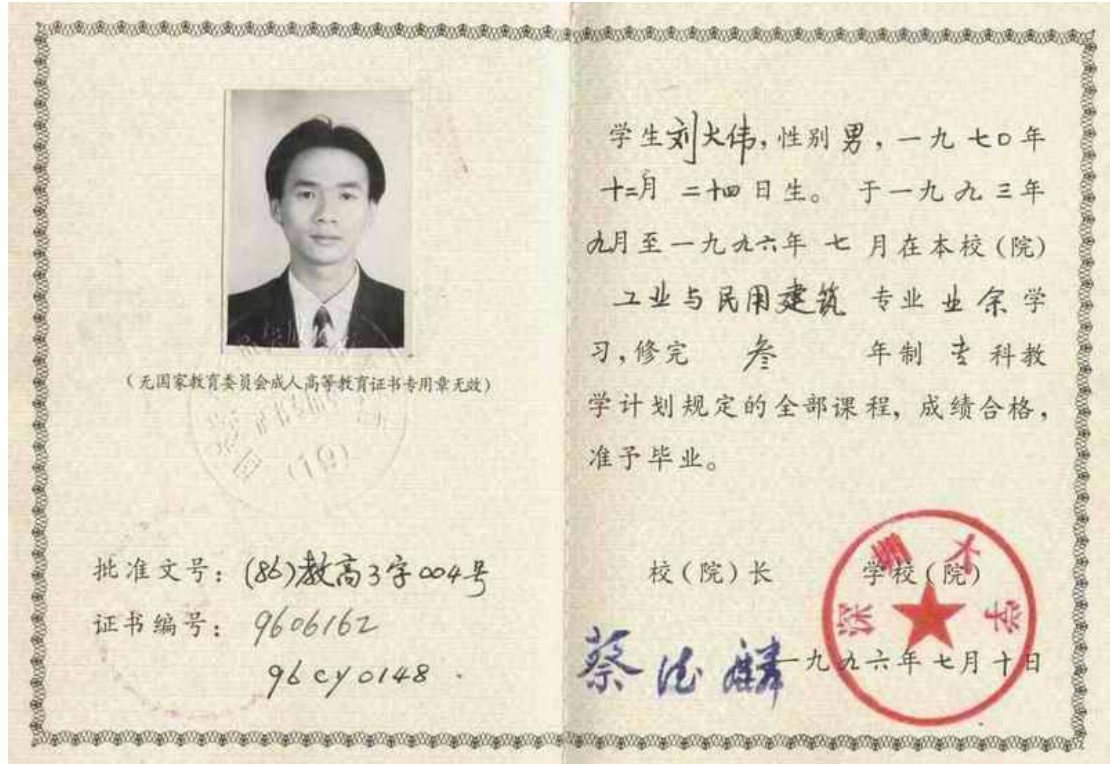 (无国家教育委员会成人高等教育证书专用章无效)
(19)
批准文号：(86)教高3字004号
证书编号：9606162
96cy0148
学生刘大伟,性别男,一九七0年
十二月二十四日生。于一九九三年
九月至一九九六年七月在本校(院)
工业与民用建筑专业业余学
习,修完叁年制专科教
学计划规定的全部课程,成绩合格,
准予毕业。
校(院)长 学校(院)
深圳大学
蔡德麟
一九九六年七月十日